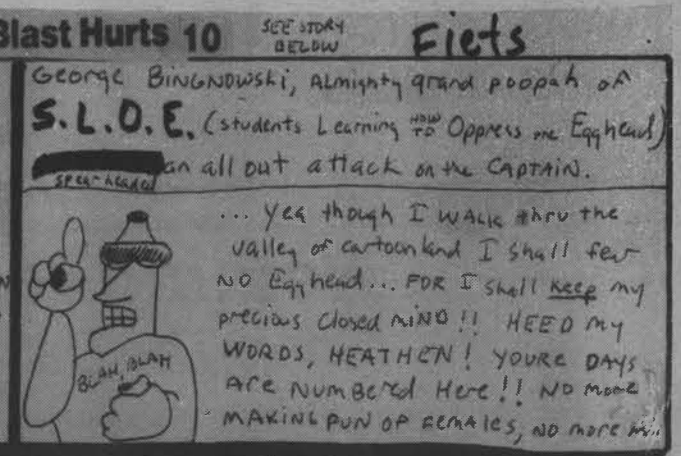 Blast Hurts 10 SEE STORY
BELOW
Fiets
George BINGNOWSKi, ALmighty grand poopah of
S.L.O.E. (students Learning HOW TO Oppress one Egghead)
spearheaded an all out attack on the CAPTAIN.
... Yea though I WALK thru the
valley of cartoonland I shall fear
NO Egghead... FOR I shall keep my
precious closed MIND!! HEED my
WORDS, HEATHEN! YOURE DAYS
ARE NUMBERED HERE!! NO MORE
MAKING FUN OF FEMALES, NO MORE
BLAH, BLAH